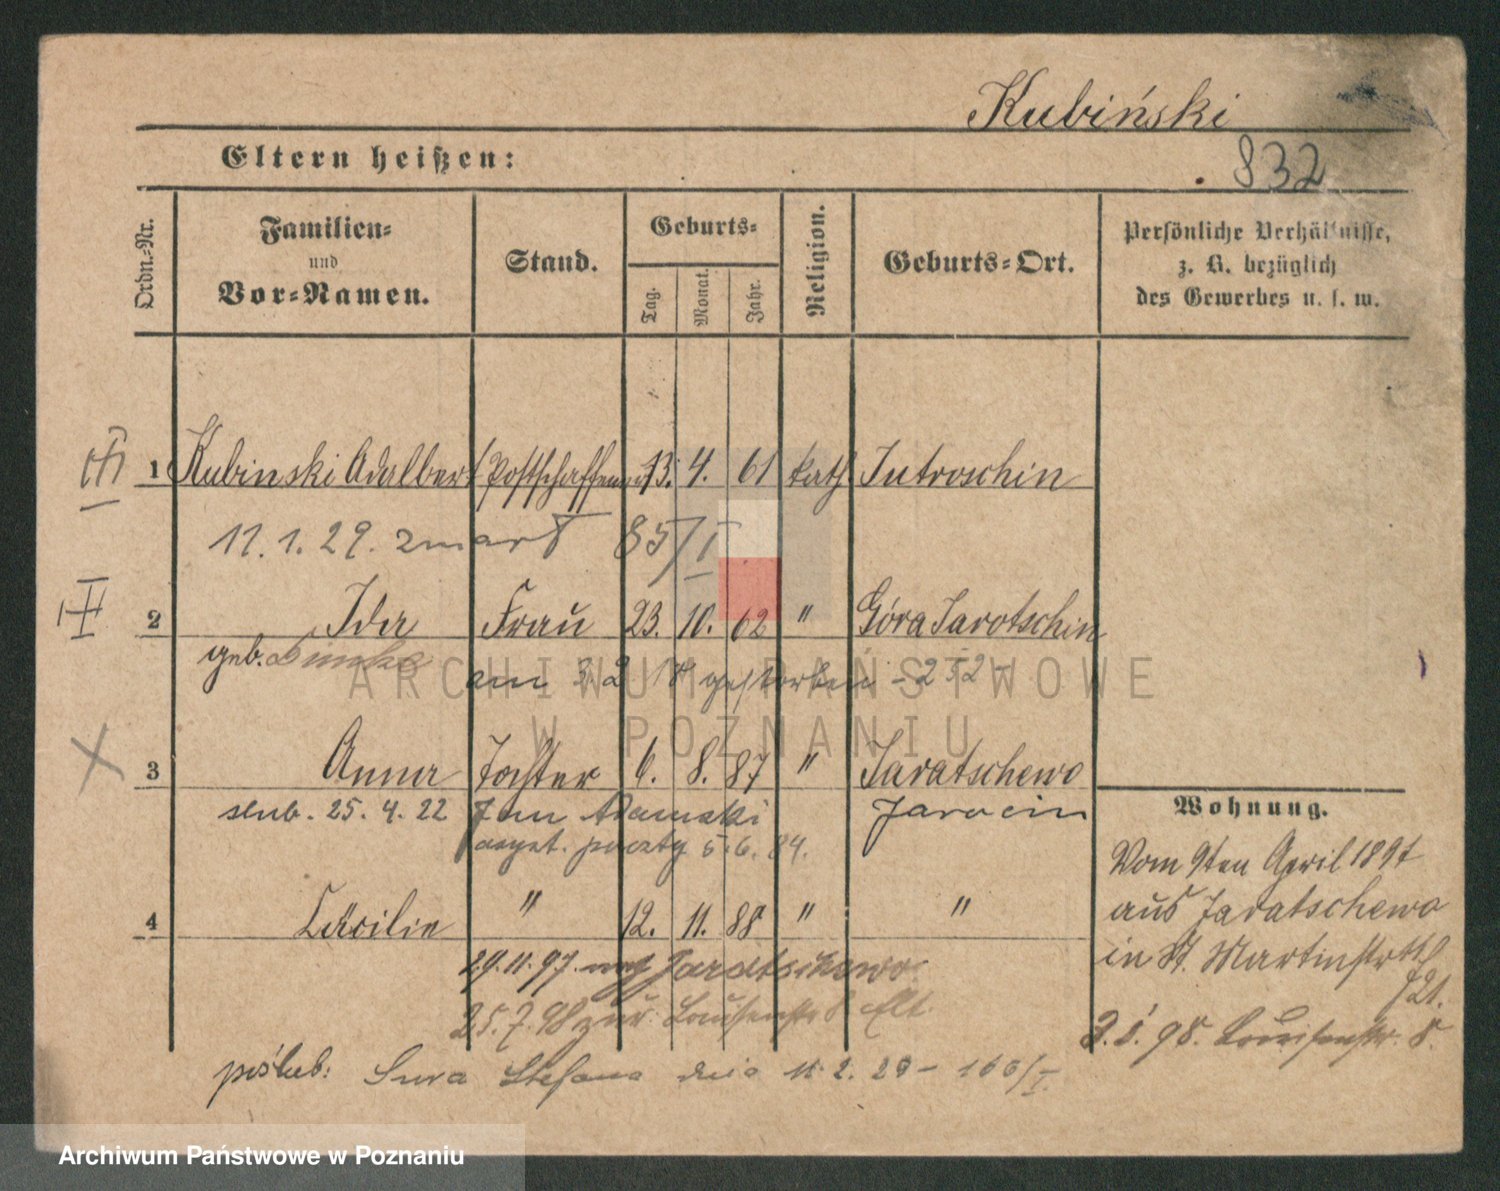 Kubiński
Eltern heißen:
832
Ordn.-Nr.
Familien-
und
Vor-Namen.
Stand.
Geburts-
Tag.
Monat.
Jahr.
Religion.
Geburts-Ort.
Persönliche Verhältnisse,
z. B. bezüglich
des Gewerbes u. s. w.
1 Kubinski Adalbert 13. 4. 61 kath. Jutroschin
11. 1. 29. zmarł 85/I
2 Ida Frau 23. 10. 62 " Góra Jarotschin
geb.
am 3. 2. 18 gestorben - 252 -
3 Anna Tochter 6. 8. 87 " Jaratschewo
Wohnung.
slub. 25. 4. 22 Jan Adamski Jarocin
asyst. poczty 5. 6. 84.
Vom 9ten April 1897
aus Jaratschewo
in St. Martinstr
4 Cäcilie " 12. 11. 88 " "
29. 11. 97. nach Jaratschewo
25. 7. 98 zur. Louisenstr 8 Elt.
98. Louisenstr. 8.
poślub: Stefana dnia 11. 2. 29 - 166/I.
ARCHIWUM PAŃSTWOWE
W POZNANIU
Archiwum Państwowe w Poznaniu